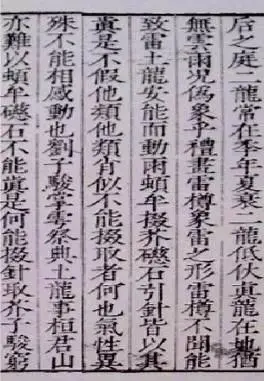 后之庭二龍常在季年夏衰二龍低伏眞龍在地猶
無雲雨況偽象乎禮畫雷樽象雷之形雷樽不聞能
致雷土龍安能而動雨頓牟掇芥磁石引針皆以其
眞是不假他類他類肖似不能掇取者何也氣性異
殊不能相感動也劉子駿掌雩祭典土龍事桓君山
亦難以頓牟磁石不能眞是何能掇針取芥子駿窮